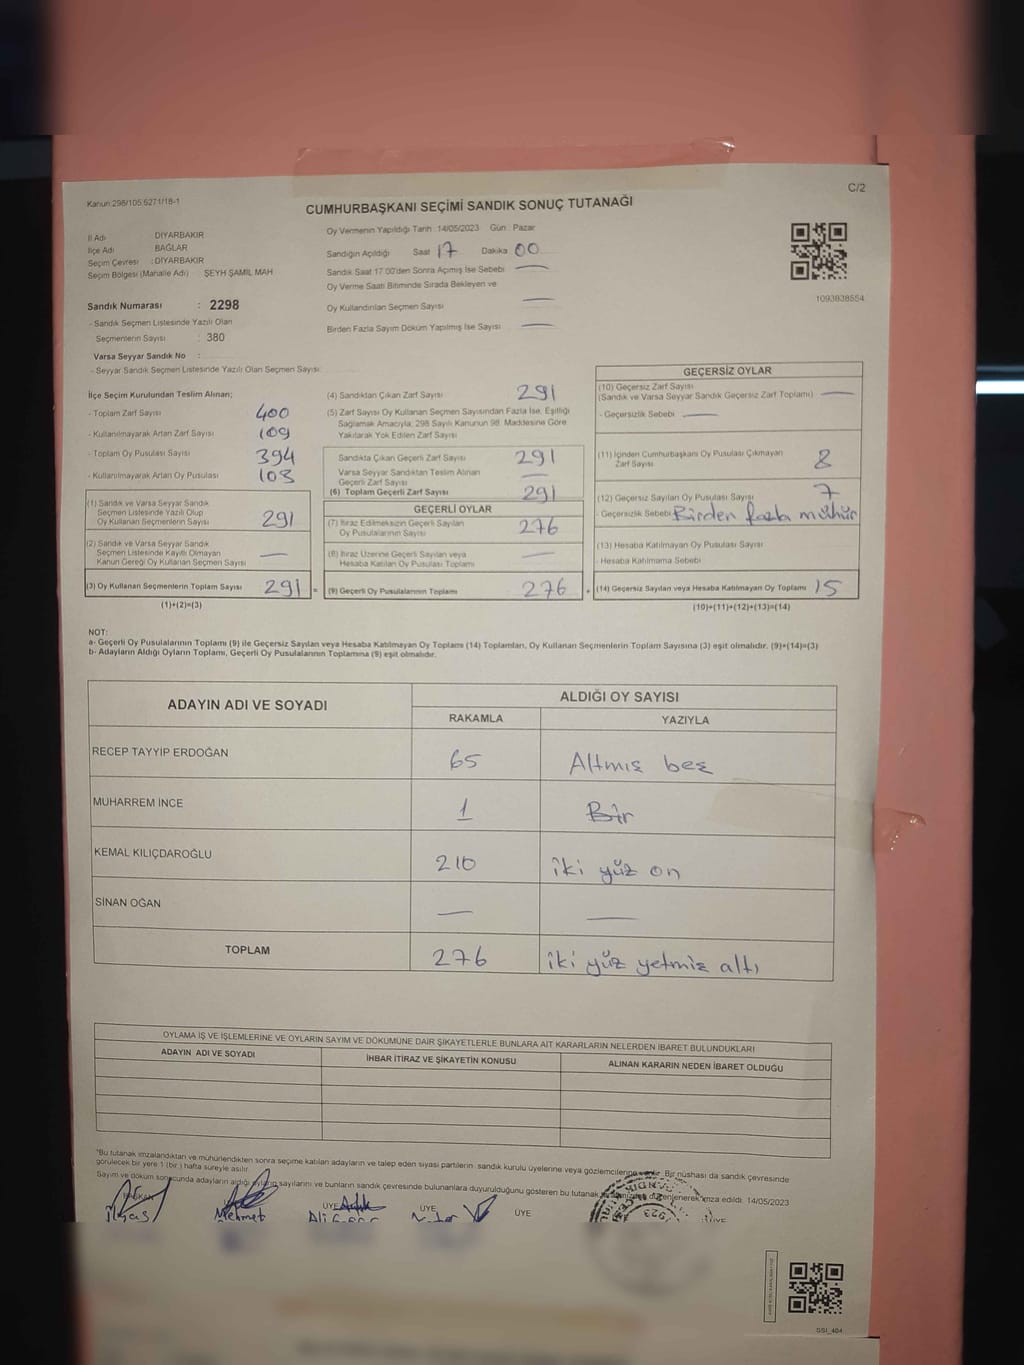 C/2
Kanun:298/105 6271/18-1
CUMHURBAŞKANI SEÇİMİ SANDIK SONUÇ TUTANAĞI
İl Adı DİYARBAKIR
İlçe Adı BAĞLAR
Seçim Çevresi : DİYARBAKIR
Seçim Bölgesi (Mahalle Adı) ŞEYH ŞAMİL MAH
Sandık Numarası : 2298
- Sandık Seçmen Listesinde Yazılı Olan
Seçmenlerin Sayısı : 380
Varsa Seyyar Sandık No :
- Seyyar Sandık Seçmen Listesinde Yazılı Olan Seçmen Sayısı:
Oy Vermenin Yapıldığı Tarih 14/05/2023 Gün Pazar
Sandığın Açıldığı Saat 17 Dakika 00
Sandık Saat 17.00'den Sonra Açılmış İse Sebebi —
Oy Verme Saati Bitiminde Sırada Bekleyen ve
Oy Kullandırılan Seçmen Sayısı —
Birden Fazla Sayım Döküm Yapılmış İse Sayısı —
1093838554
İlçe Seçim Kurulundan Teslim Alınan;
- Toplam Zarf Sayısı 400
- Kullanılmayarak Artan Zarf Sayısı 109
- Toplam Oy Pusulası Sayısı 394
- Kullanılmayarak Artan Oy Pusulası 103
(1) Sandık ve Varsa Seyyar Sandık
Seçmen Listesinde Yazılı Olup
Oy Kullanan Seçmenlerin Sayısı 291
(2) Sandık ve Varsa Seyyar Sandık
Seçmen Listesinde Kayıtlı Olmayan
Kanun Gereği Oy Kullanan Seçmen Sayısı —
(3) Oy Kullanan Seçmenlerin Toplam Sayısı 291 =
(1)+(2)=(3)
(4) Sandıktan Çıkan Zarf Sayısı 291
(5) Zarf Sayısı Oy Kullanan Seçmen Sayısından Fazla İse, Eşitliği
Sağlamak Amacıyla; 298 Sayılı Kanunun 98. Maddesine Göre
Yakılarak Yok Edilen Zarf Sayısı
Sandıkta Çıkan Geçerli Zarf Sayısı 291
Varsa Seyyar Sandıktan Teslim Alınan
Geçerli Zarf Sayısı —
(6) Toplam Geçerli Zarf Sayısı 291
GEÇERLİ OYLAR
(7) İtiraz Edilmeksizin Geçerli Sayılan
Oy Pusulalarının Sayısı 276
(8) İtiraz Üzerine Geçerli Sayılan veya
Hesaba Katılan Oy Pusulası Toplamı —
(9) Geçerli Oy Pusulalarının Toplamı 276 +
GEÇERSİZ OYLAR
(10) Geçersiz Zarf Sayısı
(Sandık ve Varsa Seyyar Sandık Geçersiz Zarf Toplamı) —
- Geçersizlik Sebebi —
(11) İçinden Cumhurbaşkanı Oy Pusulası Çıkmayan
Zarf Sayısı 8
(12) Geçersiz Sayılan Oy Pusulası Sayısı 7
- Geçersizlik Sebebi Birden fazla mühür
(13) Hesaba Katılmayan Oy Pusulası Sayısı
- Hesaba Katılmama Sebebi
(14) Geçersiz Sayılan veya Hesaba Katılmayan Oy Toplamı 15
(10)+(11)+(12)+(13)=(14)
NOT:
a- Geçerli Oy Pusulalarının Toplamı (9) ile Geçersiz Sayılan veya Hesaba Katılmayan Oy Toplamı (14) Toplamları, Oy Kullanan Seçmenlerin Toplam Sayısına (3) eşit olmalıdır. (9)+(14)=(3)
b- Adayların Aldığı Oyların Toplamı, Geçerli Oy Pusulalarının Toplamına (9) eşit olmalıdır.
ADAYIN ADI VE SOYADI ALDIĞI OY SAYISI
RAKAMLA YAZIYLA
RECEP TAYYİP ERDOĞAN 65 Altmış beş
MUHARREM İNCE 1 Bir
KEMAL KILIÇDAROĞLU 210 iki yüz on
SİNAN OĞAN — —
TOPLAM 276 iki yüz yetmiş altı
OYLAMA İŞ VE İŞLEMLERİNE VE OYLARIN SAYIM VE DÖKÜMÜNE DAİR ŞİKAYETLERLE BUNLARA AİT KARARLARIN NELERDEN İBARET BULUNDUKLARI
ADAYIN ADI VE SOYADI İHBAR İTİRAZ VE ŞİKAYETİN KONUSU ALINAN KARARIN NEDEN İBARET OLDUĞU
*Bu tutanak imzalandıktan ve mühürlendikten sonra seçime katılan adayların ve talep eden siyasi partilerin sandık kurulu üyelerine veya gözlemcilerine verilir. Bir nüshası da sandık çevresinde
görülecek bir yere 1 (bir) hafta süreyle asılır.
Sayım ve döküm sonucunda adayların aldığı oyların sayılarını ve bunların sandık çevresinde bulunanlara duyurulduğunu gösteren bu tutanak düzenlenerek imza edildi. 14/05/2023
BAŞKAN ÜYE ÜYE ÜYE ÜYE
İlyas Mehmet Ali
SSI_404